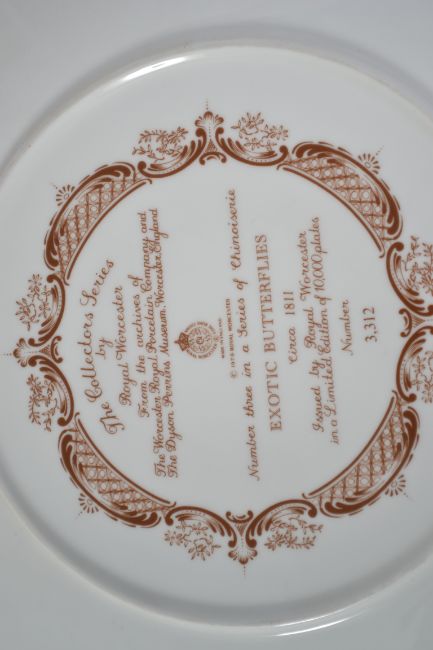 The Collectors Series
by
Royal Worcester
From the archives of
The Worcester Royal Porcelain Company and
The Dyson Perrins Museum, Worcester, England
Number three in a Series of Chinoiserie
EXOTIC BUTTERFLIES
Circa 1811
Issued by Royal Worcester
in a Limited Edition of 10,000 plates
Number
3,312